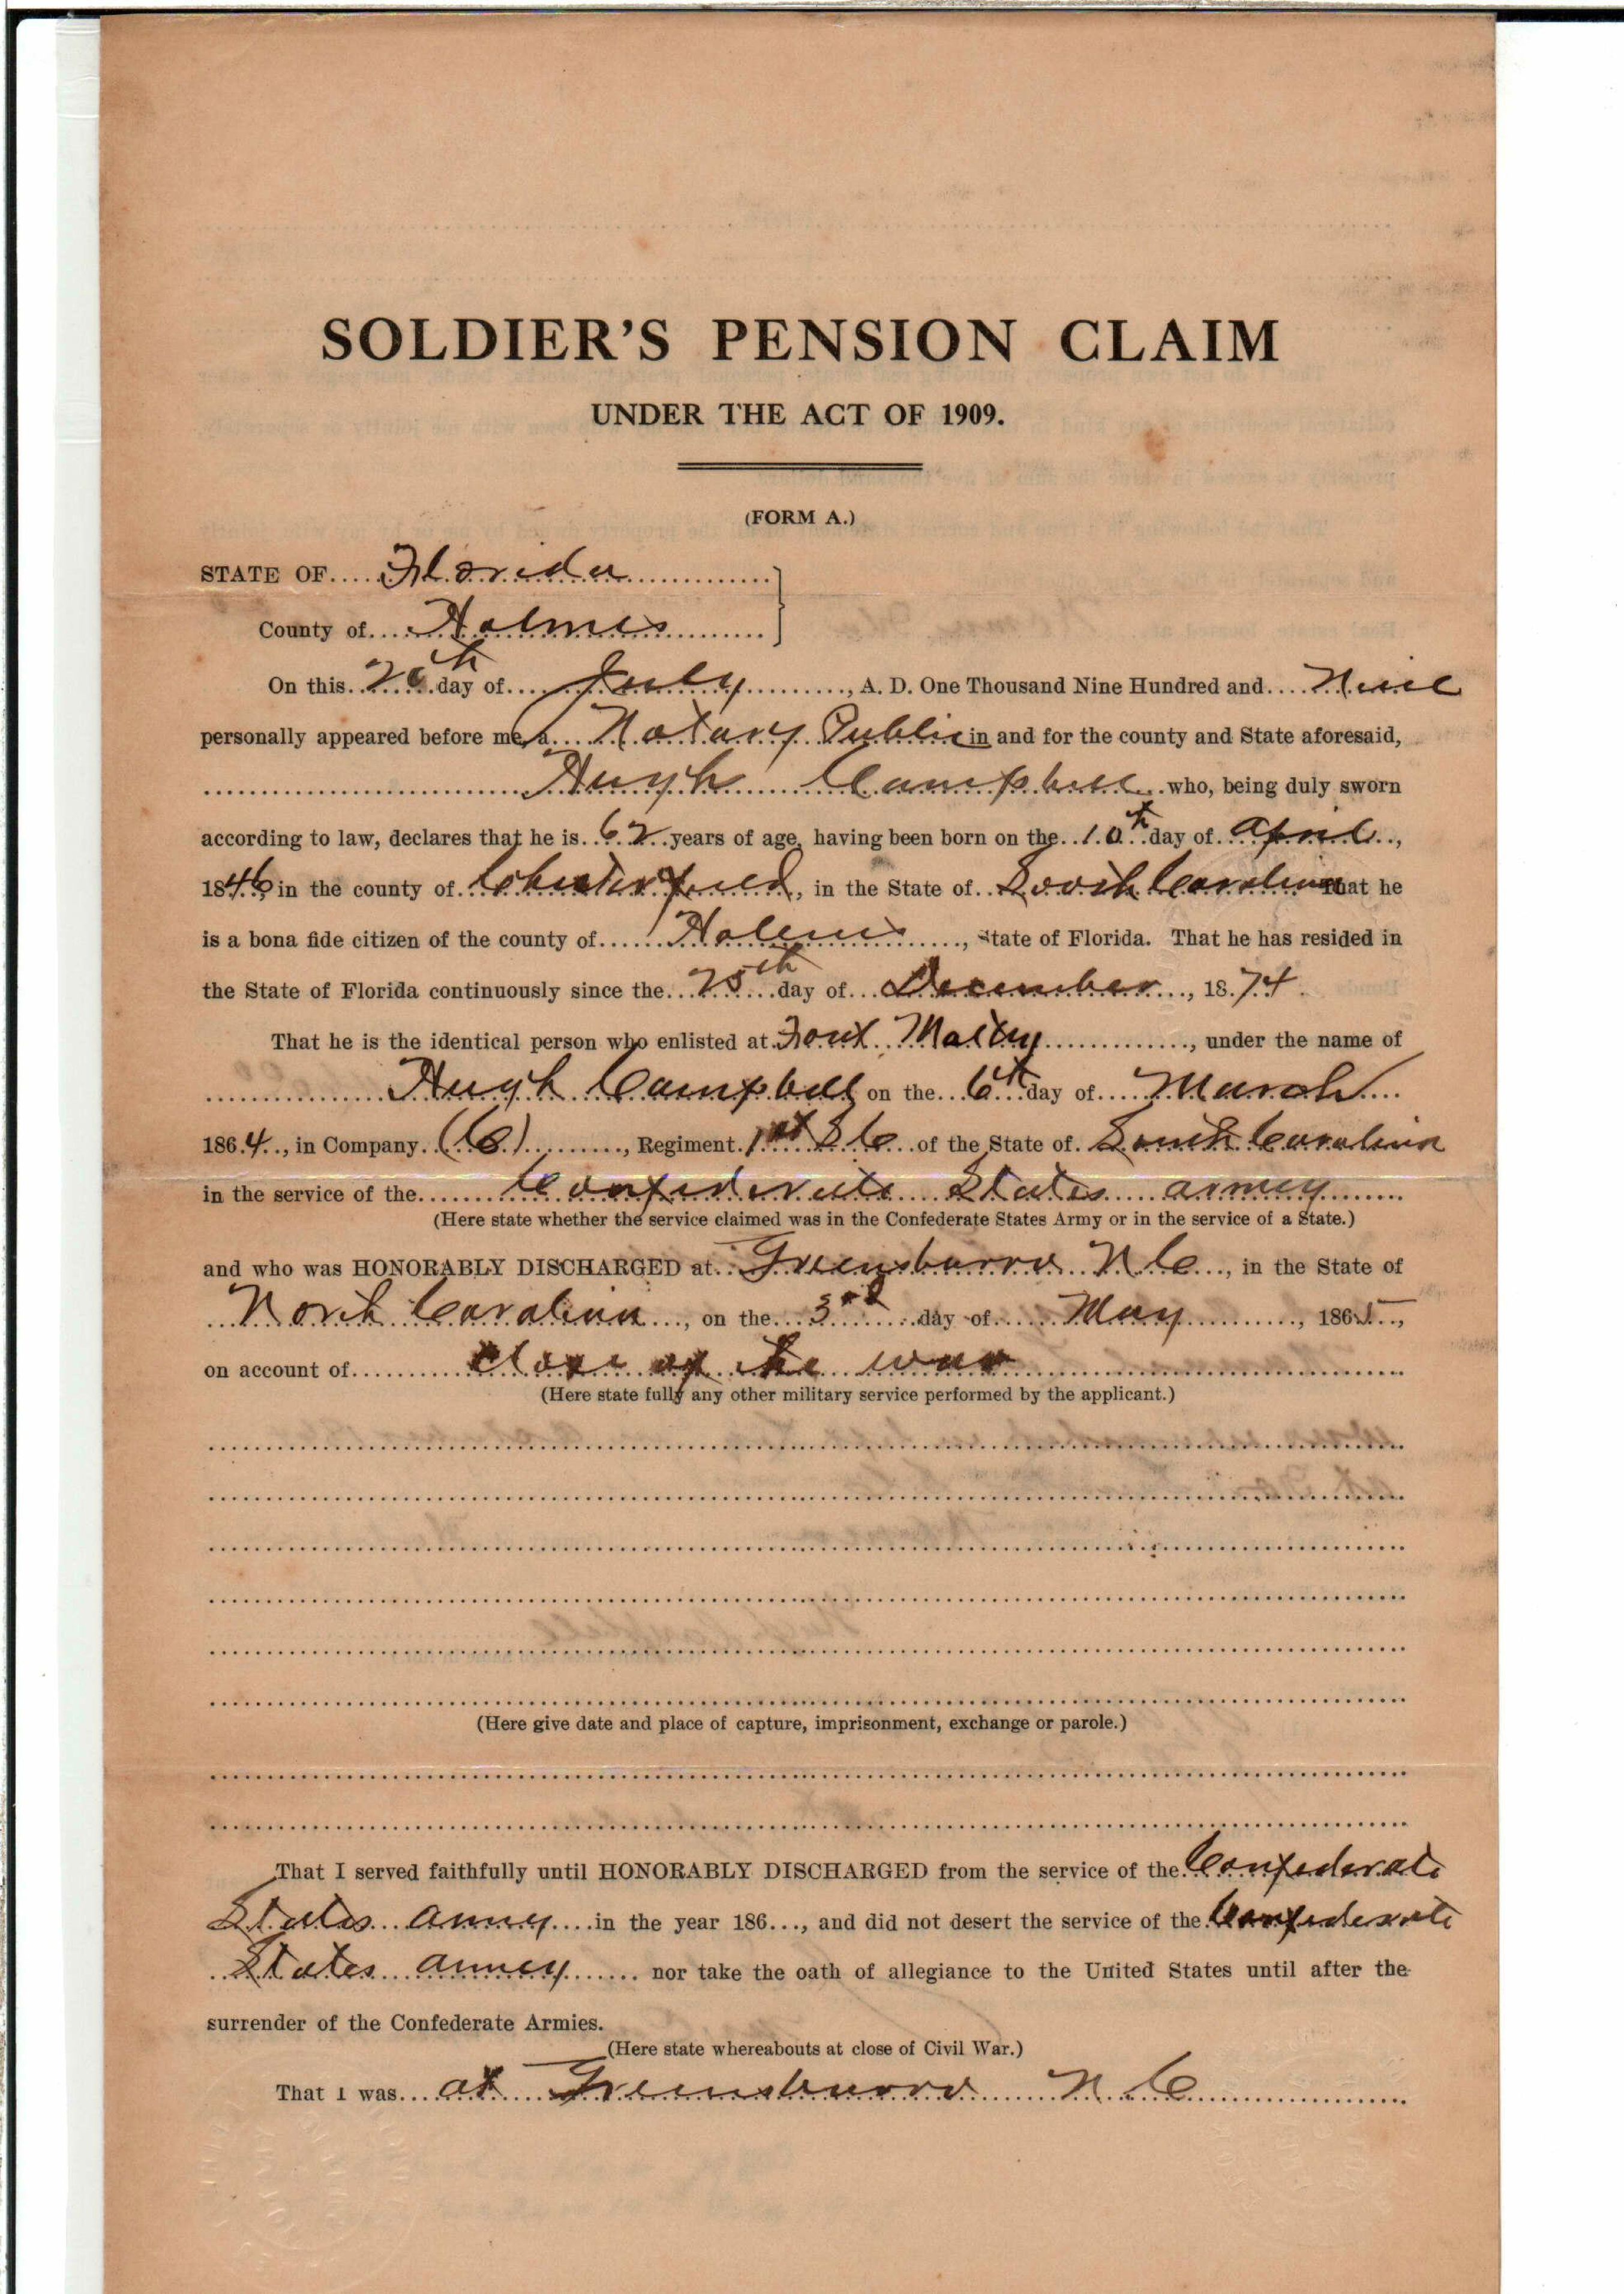 SOLDIER'S PENSION CLAIM
UNDER THE ACT OF 1909.
(FORM A.)
STATE OF Florida
County of Holmes
On this 26th day of July, A. D. One Thousand Nine Hundred and Nine
personally appeared before me, a Notary Public in and for the county and State aforesaid,
Hugh Campbell who, being duly sworn
according to law, declares that he is 62 years of age, having been born on the 10th day of April,
1846, in the county of Chesterfield, in the State of South Carolina That he
is a bona fide citizen of the county of Holmes, State of Florida. That he has resided in
the State of Florida continuously since the 25th day of December, 1874.
That he is the identical person who enlisted at Fort, under the name of
Hugh Campbell on the 6th day of March
1864, in Company (C), Regiment 1st S C of the State of South Carolina
in the service of the Confederate States army
(Here state whether the service claimed was in the Confederate States Army or in the service of a State.)
and who was HONORABLY DISCHARGED at Greensburro N C, in the State of
North Carolina, on the 3rd day of May, 1865,
on account of close of the war
(Here state fully any other military service performed by the applicant.)
(Here give date and place of capture, imprisonment, exchange or parole.)
That I served faithfully until HONORABLY DISCHARGED from the service of the Confederate
States army in the year 186..., and did not desert the service of the Confederate
States army nor take the oath of allegiance to the United States until after the
surrender of the Confederate Armies.
(Here state whereabouts at close of Civil War.)
That I was at Greensburro N C